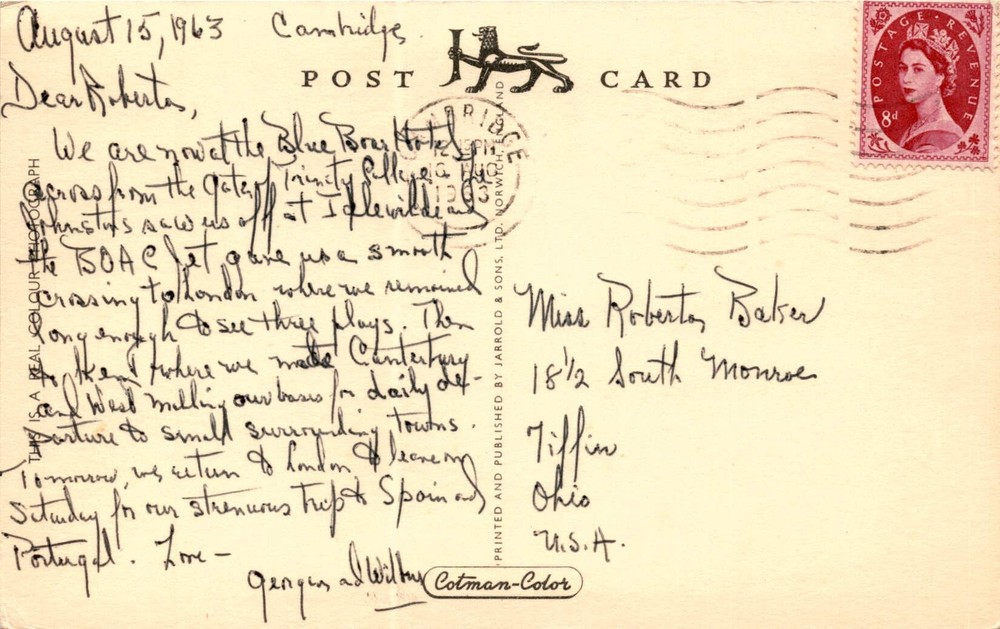 August 15, 1963 Cambridge
POST CARD
POSTAGE REVENUE
8d
Dear Roberta,
We are now at the Blue Boar Hotel
across from the Gate of Trinity College.
Johnstons saw us off at Idlewilde and
the BOAC jet gave us a smooth
crossing to London where we remained
long enough to see three plays. Then
to Kent where we made Canterbury
and West Malling our bases for daily de-
parture to small surrounding towns.
Tomorrow, we return to London to leave on
Saturday for our strenuous trip to Spain and
Portugal. Love —
Georgia and Wilbur
THIS IS A REAL COLOUR PHOTOGRAPH
PRINTED AND PUBLISHED BY JARROLD & SONS, LTD. NORWICH, ENGLAND
BRIDGE
1963
Miss Roberta Baker
18 1/2 South Monroe
Tiffin
Ohio
U.S.A.
Cotman-Color